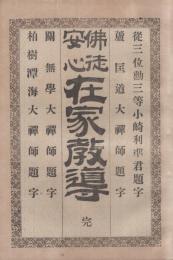 從三位勳三等小崎利準君題字
蘆匡道大禪師題字
佛徒安心
在家教導
完
關無學大禪師題字
柏樹潭海大禪師題字